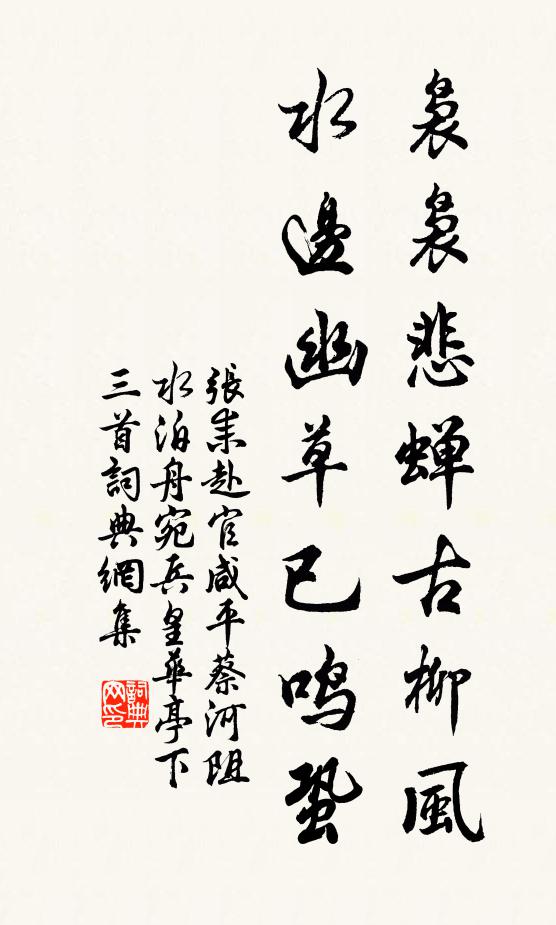 裊裊悲蟬古柳風
水邊幽草已鳴蛩
張耒赴官咸平蔡河阻
水泊舟宛丘皇華亭下
三首詞典網集
詞典网印